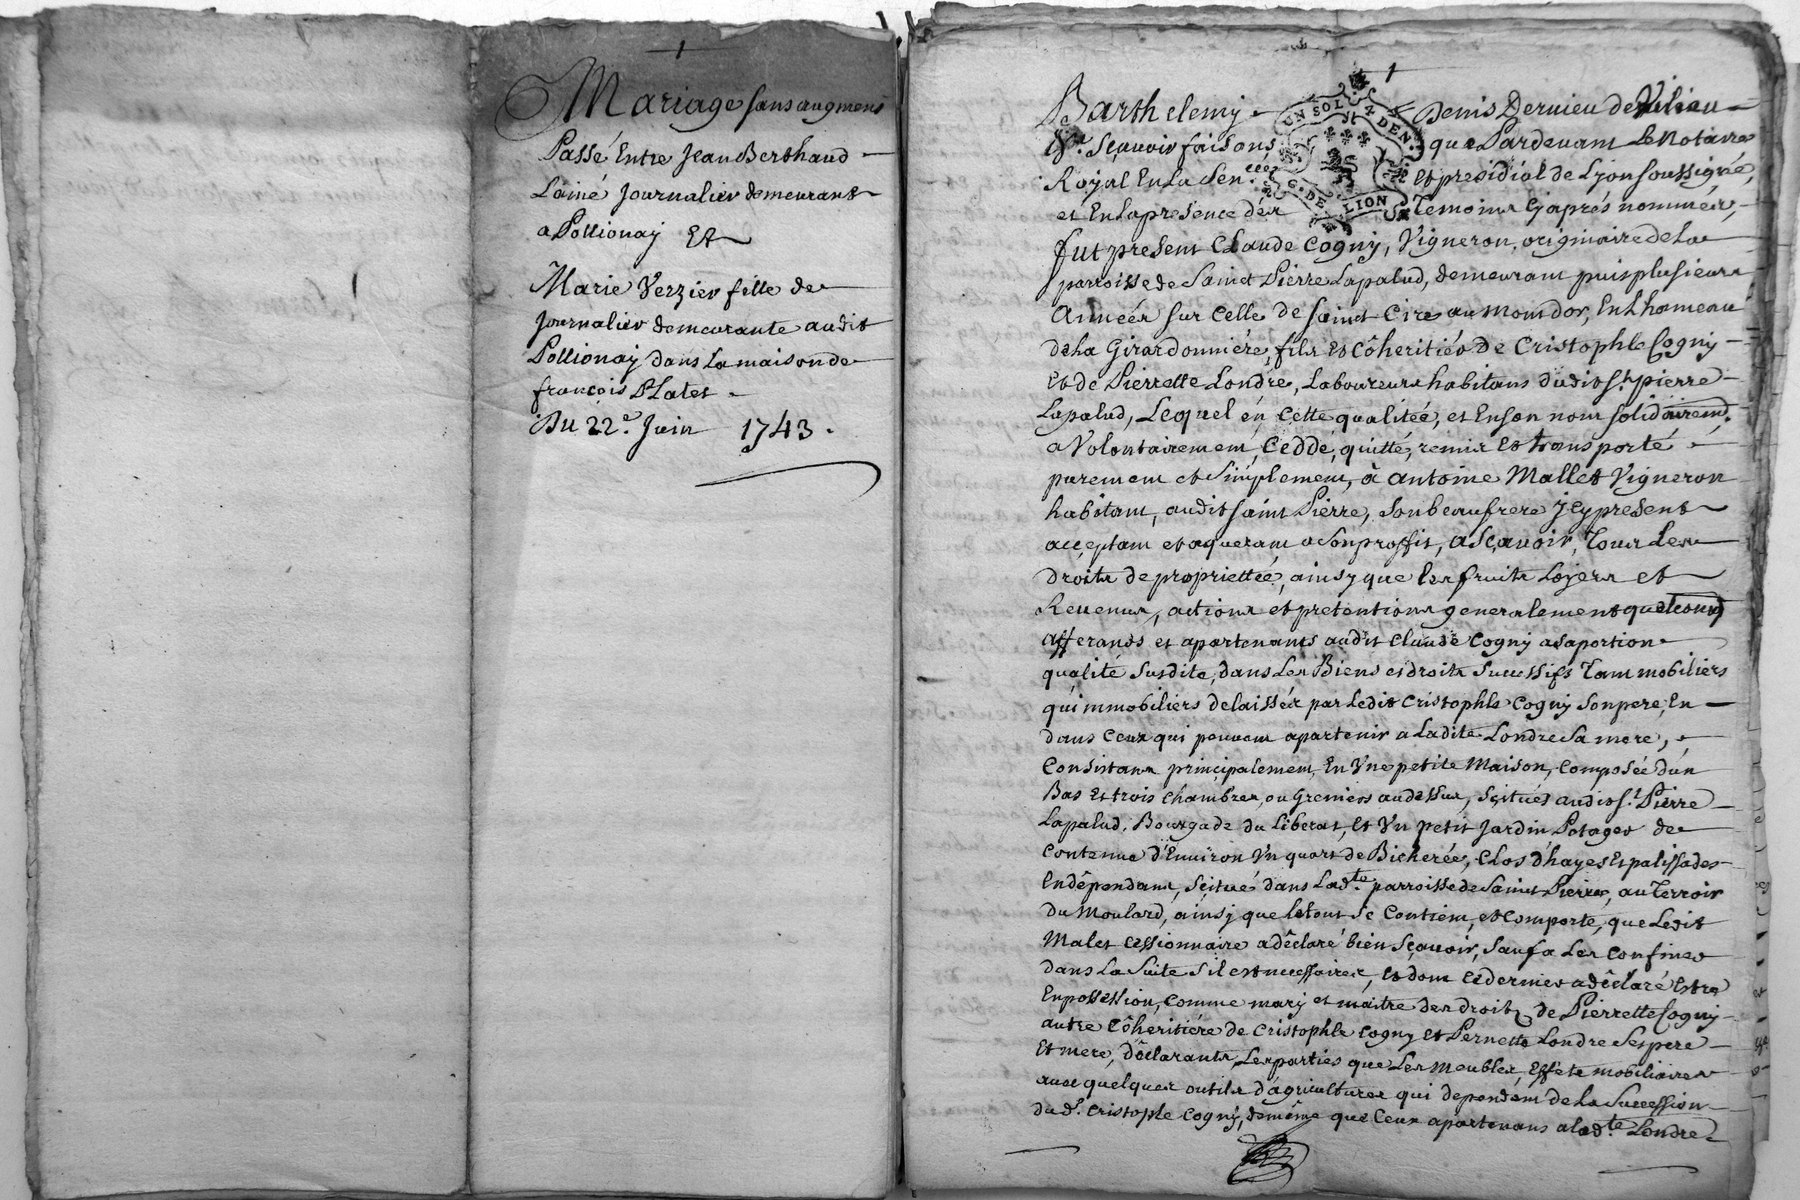 Mariage sans augment
Passé Entre Jean Berthaud
Lainé Journalier demeurant
a Pollionay Et
Marie Verzier fille de
Journalier demeurante audit
Pollionay dans la maison de
françois Plates
Du 22e. Juin 1743.
Barthelemy Denis Dervieu de Viliau
UN SOL 4 DEN.
G. DE LION
Sçavoir faisons que Pardevant Le Notaire
Royal En la Sén.cée et presidial de Lyon soussigné,
et En la presence des Temoins cy aprés nommés,
fut present Claude Cogny, Vigneron, originaire de la
parroisse de Sainct Pierre Lapalud, demeurant puis plusieurs
Années sur celle de saint Cire au Montdor, En L'hameau
de la Girardonniére, fils et côheritiér de Cristophle Cogny
et de Pierrette Londre, Laboureurs habitans dudit St. pierre
Lapalud, Lequel én cette qualitée, et En son nom solidairemt.
a Volontairement, Ceddé, quitté, remis et transporté
purement et Simplement, à antoine Mallet Vigneron
habitant, audit saint Pierre, Son beaufrere jcy present
acceptant et aquerant a Son proffit, aSçavoir, Tous Les
droits de propriettée, ainsy que les fruits Loyers et
Revenus, actions et pretentions generalement quelconq
afferands et apartenants audit Claude Cogny a sa portion
qualité susdite, dans Les Biens et droits Successifs Tant mobiliers
qu'immobiliers delaissés par Ledit Cristophle Cogny Son pere, En
dans Ceux qui peuvent apartenir a Ladite Londre Sa mere,
Consistans principalement, En Une petite Maison, Composée d'un
Bas Et trois chambres, ou Greniers au dessus, Scitués audit St. Pierre
Lapalud, Bourgade du Liberat, Et Un petit Jardin Potager de
Contenue d'Environ Un quart de Bicherée, Clos d'hayes Et palissades
Indépendant, Scitué dans Ladte. parroisse de Saint Pierre, au Terroir
du Moulard, ainsy que le tout Se Contient, et Comporte, que Ledit
Malet Cessionnaire a déclaré bien Sçavoir, Sauf a Les confiner
dans La Suite S'il est necessaires, et dont Ce dernier a déclaré Estre
En possession, Comme mary et maitre des droits de Pierrette Cogny
autre Côheritiére de Cristophle Cogny et Pernette Londre Ses pere
Et mere, Déclarants Les parties que Les Meubles, Effets mobiliaires
avec quelques outils d'agriculture qui dependent de La Succession
dud. Cristople Cogny, de même que Ceux apartenans a lad.te Londre